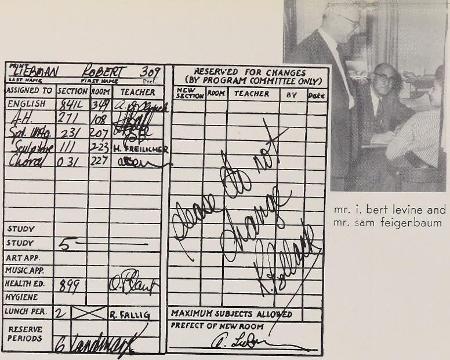 PRINT
LIEBMAN ROBERT 309
LAST NAME FIRST NAME
ASSIGNED TO SECTION ROOM TEACHER
ENGLISH 841L 349
A.H. 271 108
231 207
Sculpture 111 223 H. FREILICHER
Choral 031 227
STUDY
STUDY 5
ART APP.
MUSIC APP.
HEALTH ED. 899
HYGIENE
LUNCH PER. 2 R. FALLIG
RESERVE PERIODS 6
RESERVED FOR CHANGES
(BY PROGRAM COMMITTEE ONLY)
NEW SECTION ROOM TEACHER BY Date
please do not
change
K. Pollack
MAXIMUM SUBJECTS ALLOWED
PREFECT OF NEW ROOM
mr. i. bert levine and
mr. sam feigenbaum